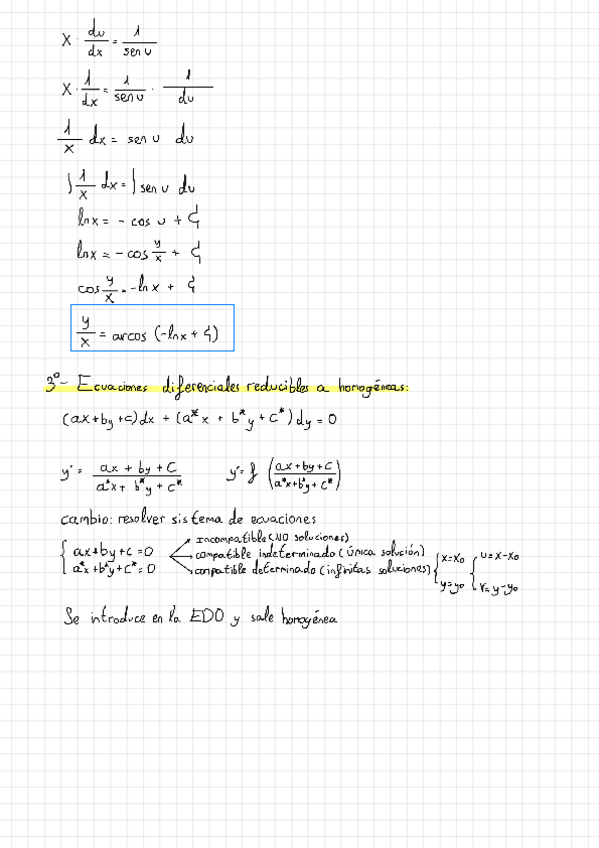 x · du/dx = 1/sen u
x · 1/dx = 1/sen u · 1/du
1/x dx = sen u du
∫ 1/x dx = ∫ sen u du
ln x = - cos u + C₁
ln x = - cos y/x + C₁
cos y/x = - ln x + C₁
y/x = arcos (-ln x + C₁)
3º- Ecuaciones diferenciales reducibles a homogéneas:
(ax+by+c)dx + (a*x + b*y + c*)dy = 0
y' = (ax + by + c)/(a*x + b*y + c*) y' = f((ax+by+c)/(a*x+b*y+c*))
cambio: resolver sistema de ecuaciones
{ ax+by+c=0
a*x+b*y+c*=0
Incompatible (NO soluciones)
compatible indeterminado (única solución)
compatible determinado (infinitas soluciones)
{ x=x₀
y=y₀
{ u=x-x₀
v=y-y₀
Se introduce en la EDO y sale homogénea